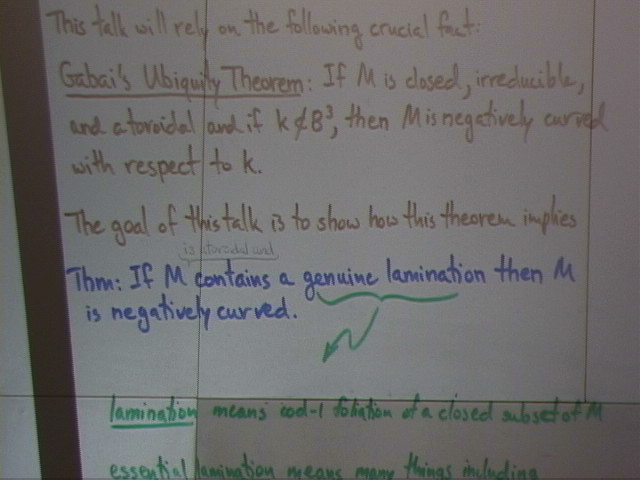 This talk will rely on the following crucial fact:
Gabai's Ubiquity Theorem: If M is closed, irreducible,
and atoroidal and if k ⊄ B³, then M is negatively curved
with respect to k.
The goal of this talk is to show how this theorem implies
is atoroidal and
Thm: If M contains a genuine lamination then M
is negatively curved.
lamination means cod-1 foliation of a closed subset of M
essential lamination means many things including